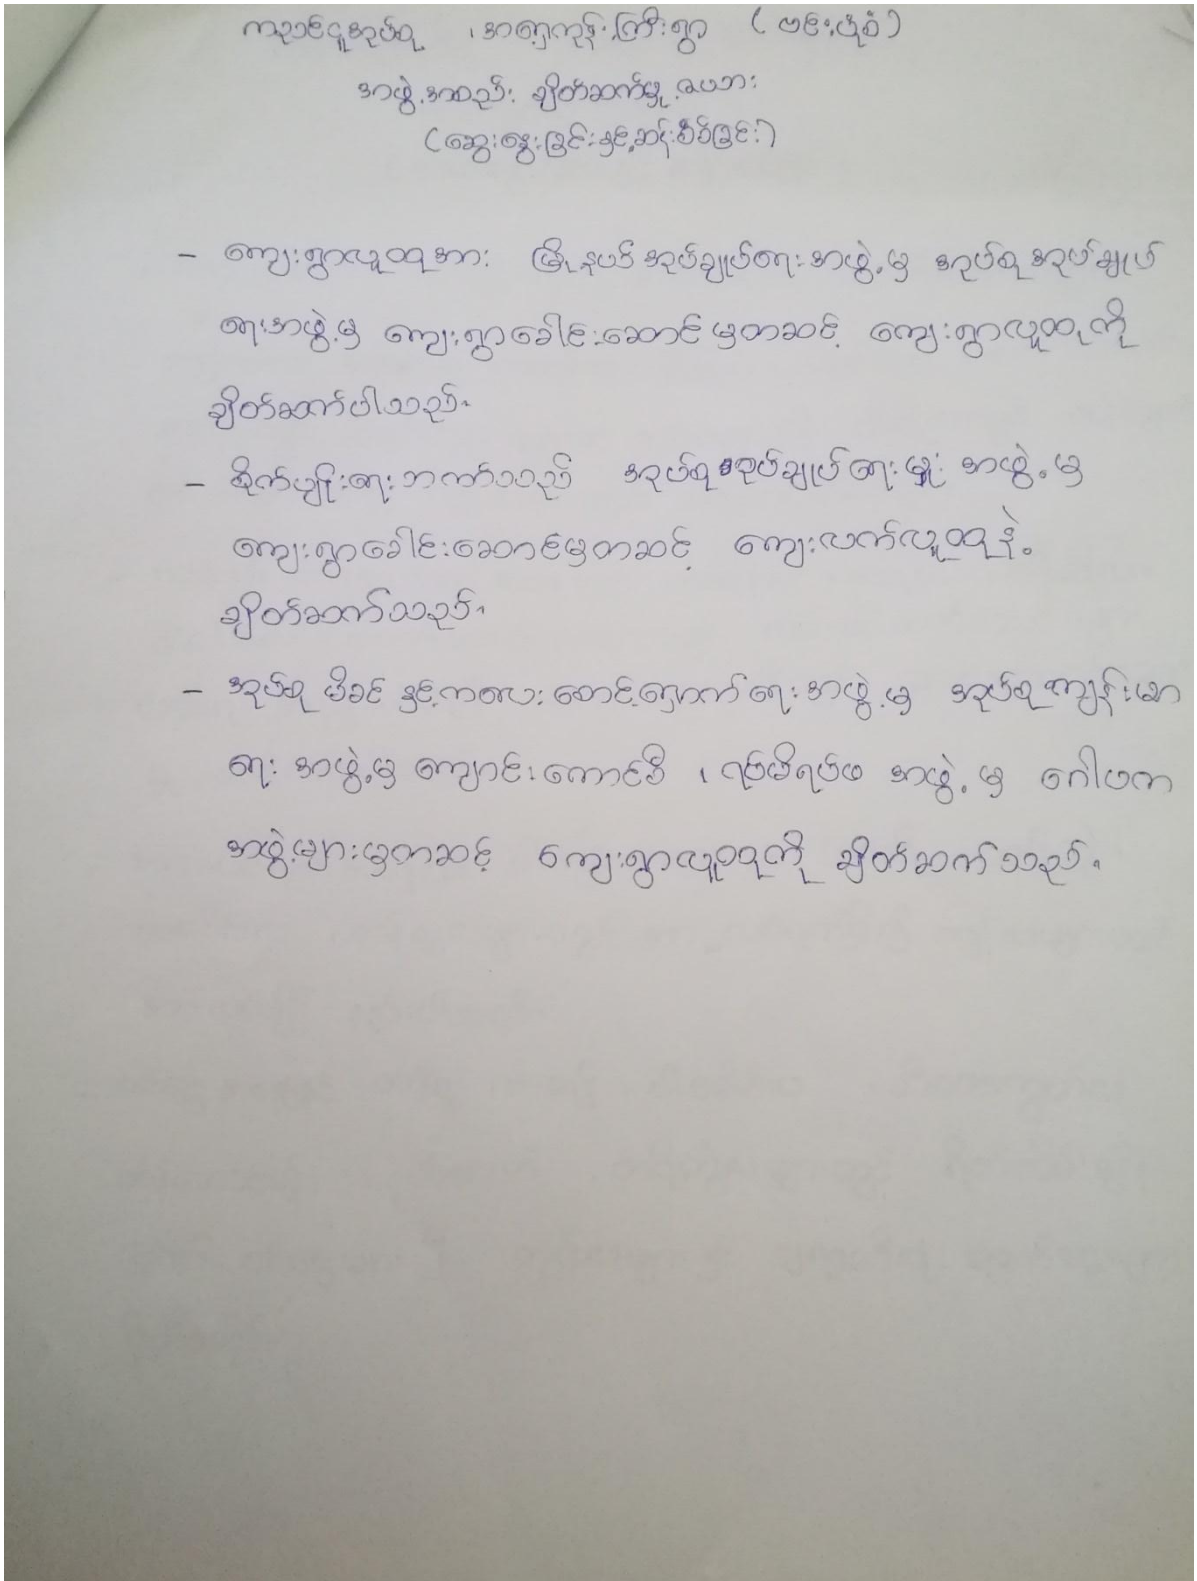 ကညင်ငူအုပ်စု ၊ အရှေ့ကုန်းကြီးရွာ ( ဗင်းပုံစံ )
အဖွဲ့အစည်း ချိတ်ဆက်မှု ဇယား
(ဆွေးနွေးခြင်းနှင့်ဆန်းစစ်ခြင်း)
- ကျေးရွာလူထုအား မြို့နယ်အုပ်ချုပ်ရေးအဖွဲ့မှ အုပ်စုအုပ်ချုပ်
ရေးအဖွဲ့မှ ကျေးရွာခေါင်းဆောင်မှတဆင့် ကျေးရွာလူထုကို
ချိတ်ဆက်ပါသည်။
- စိုက်ပျိုးရေးဘက်သည် အုပ်စုအုပ်ချုပ်ရေးမှူး အဖွဲ့မှ
ကျေးရွာခေါင်းဆောင်မှတဆင့် ကျေးလက်လူထုနဲ့
ချိတ်ဆက်သည်။
- အုပ်စု မိခင်နှင့်ကလေးစောင့်ရှောက်ရေးအဖွဲ့မှ အုပ်စုကျန်းမာ
ရေး အဖွဲ့မှ ကျောင်းကောင်စီ ၊ ရပ်မိရပ်ဖ အဖွဲ့မှ ဂေါပက
အဖွဲ့များမှတဆင့် ကျေးရွာလူထုကို ချိတ်ဆက်သည်။